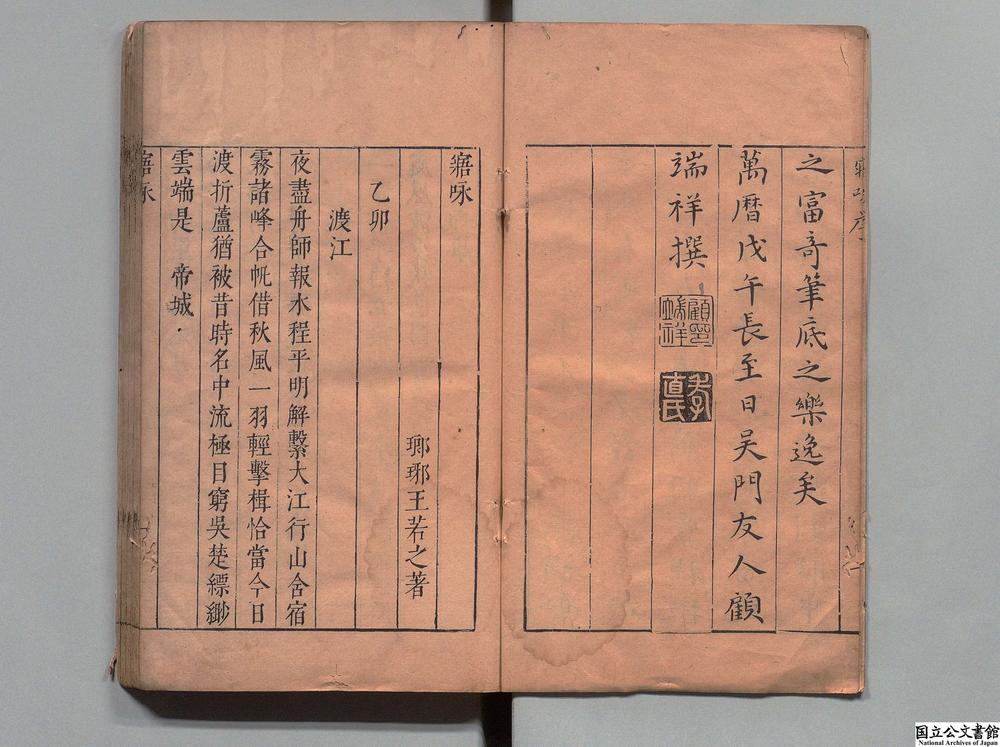 之富奇筆底之樂逸矣
萬曆戊午長至日吴門友人顧
端祥撰
寤咏
瑯琊王若之著
乙卯
渡江
夜盡舟師報水程平明解繫大江行山含宿
霧諸峰合帆借秋風一羽輕擊楫恰當今日
渡折蘆猶被昔時名中流極目窮吳楚縹緲
雲端是 帝城
寤咏
国立公文書館
National Archives of Japan